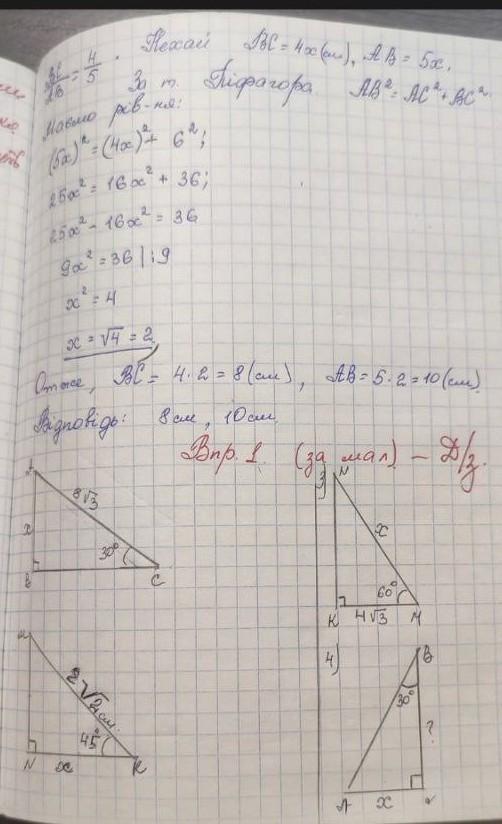 BC/AB = 4/5. Нехай BC = 4x (см), AB = 5x.
За т. Піфагора AB² = AC² + BC²
Маємо рів-ня:
(5x)² = (4x)² + 6²;
25x² = 16x² + 36;
25x² - 16x² = 36
9x² = 36 | :9
x² = 4
x = √4 = 2
Отже, BC = 4·2 = 8 (см), AB = 5·2 = 10 (см)
Відповідь: 8 см, 10 см
Впр. 1. (за мал) – Д/з.
A
8√3
x
30°
B
C
3)
N
x
60°
K
4√3
M
2√2 см.
45°
N
x
K
4)
B
30°
?
A
x